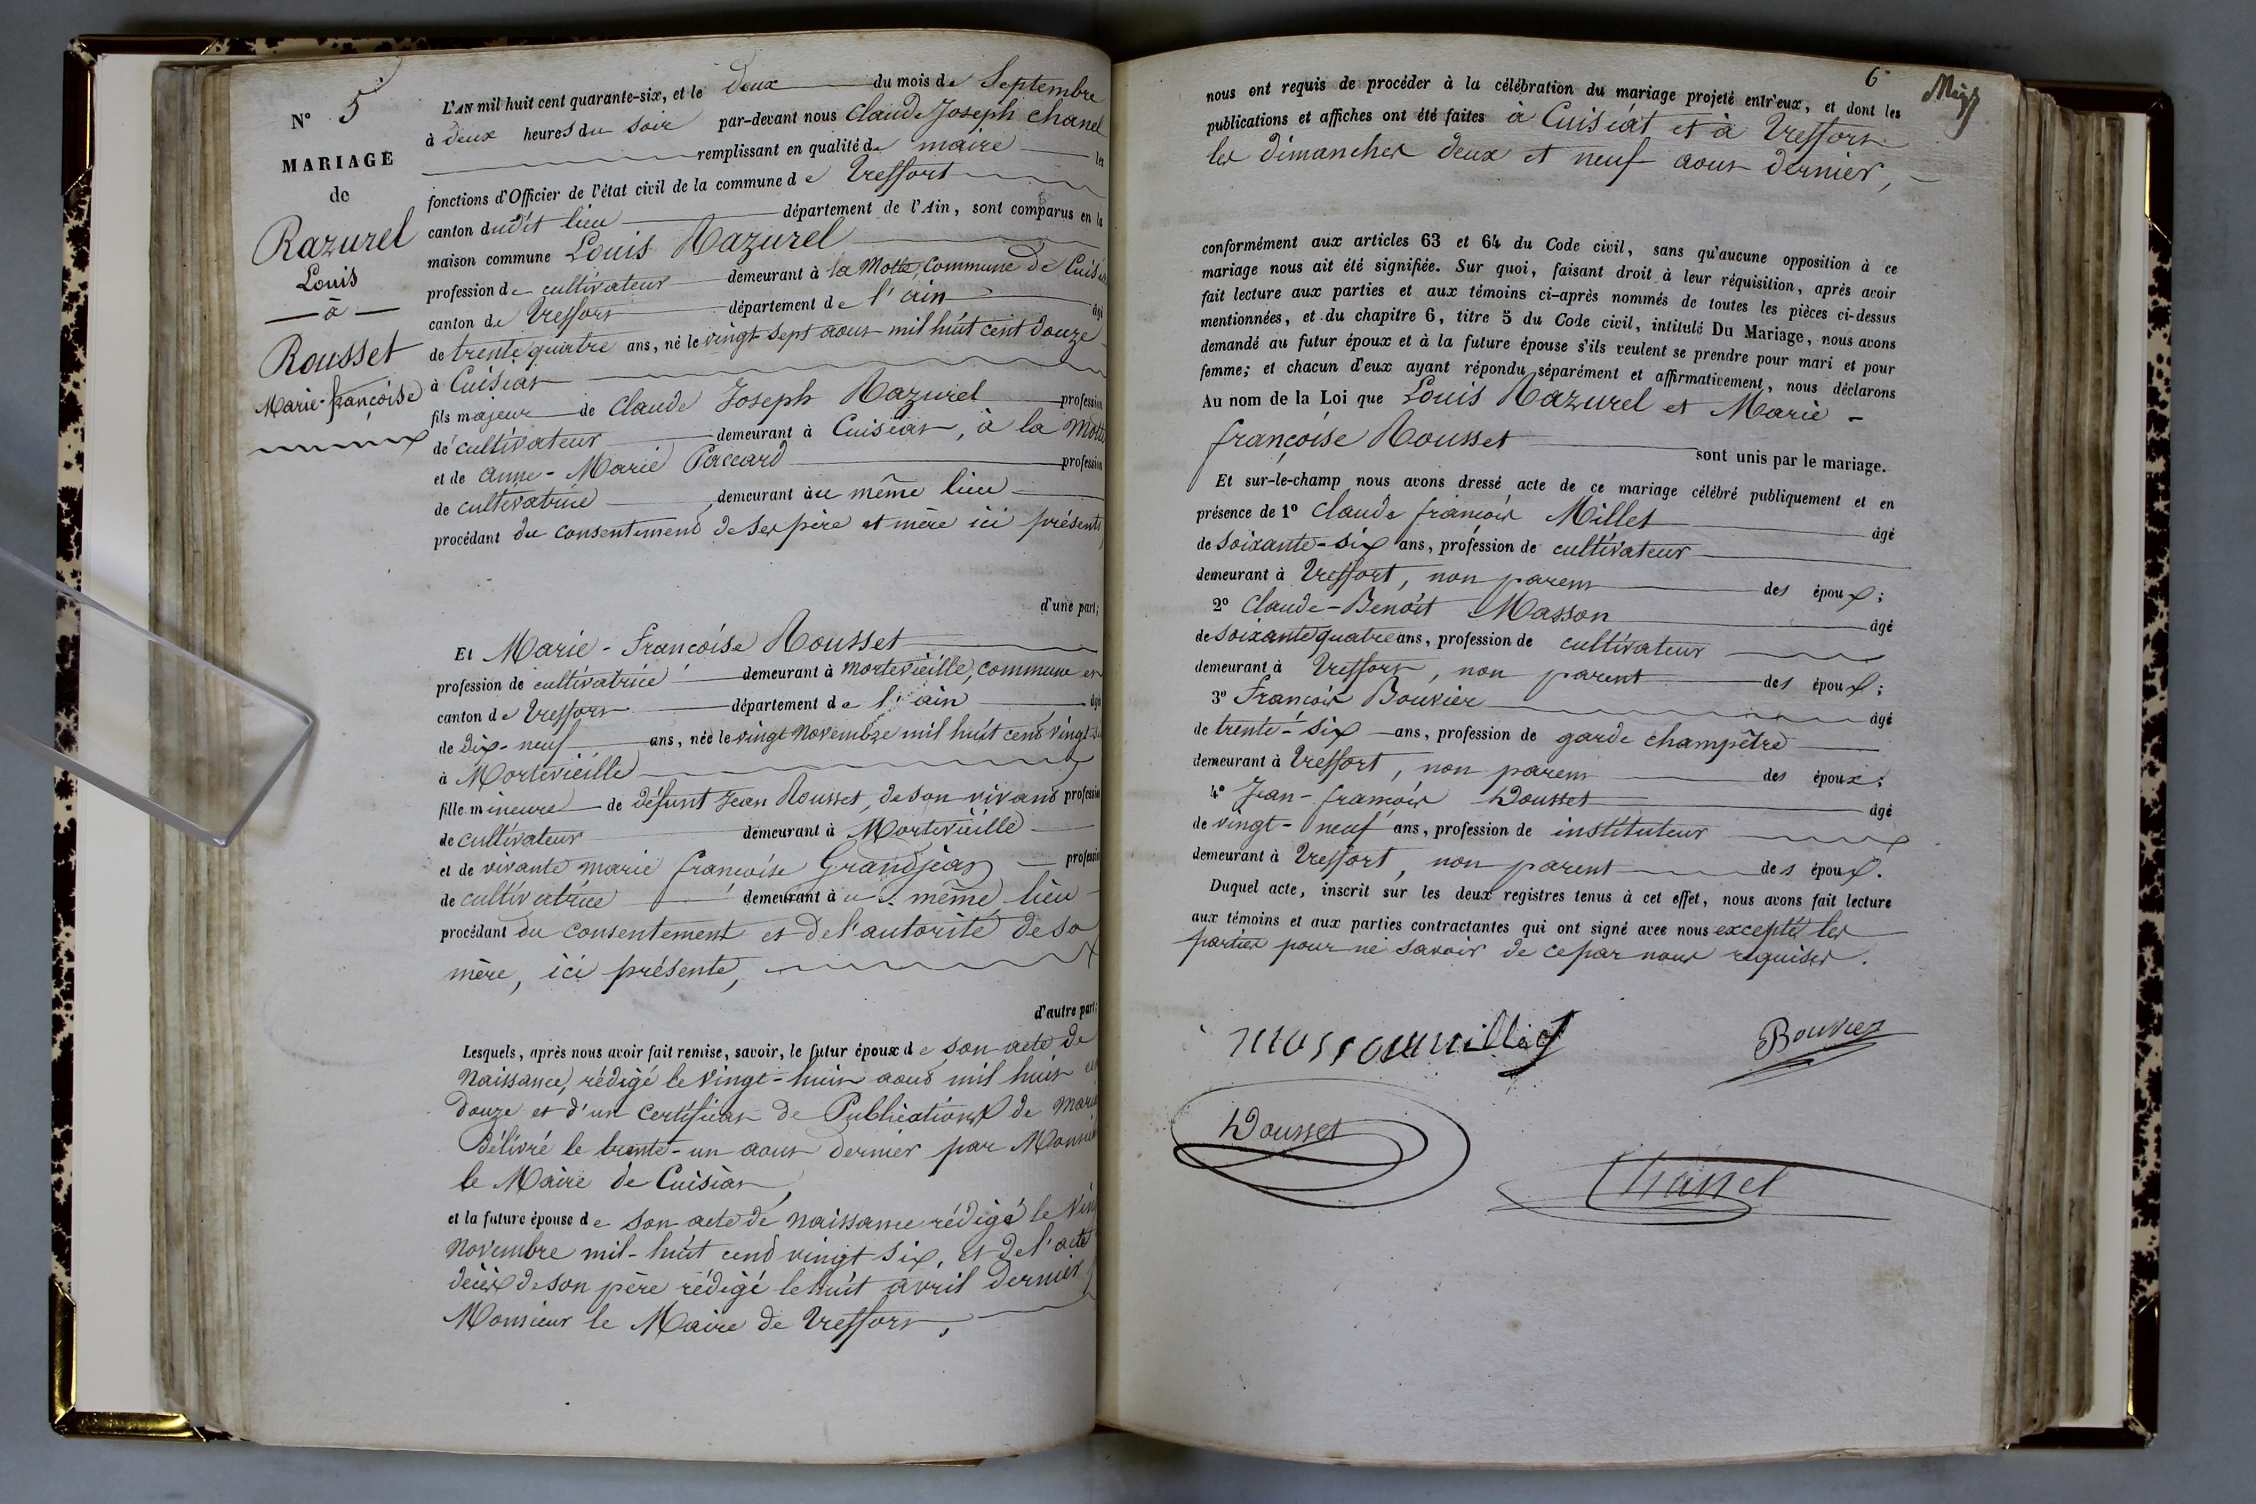 N° 5
MARIAGE
de
Razurel
Louis
— à —
Rousset
Marie-françoise
L'AN mil huit cent quarante-six, et le deux du mois de Septembre
à deux heures du soir par-devant nous Claude Joseph Chanel
remplissant en qualité de maire les
fonctions d'Officier de l'état civil de la commune de Treffort
canton dudit lieu département de l'Ain, sont comparus en la
maison commune Louis Razurel
profession de cultivateur demeurant à la Motte, commune de Cuisiat
canton de Treffort département de l'ain âgé
de trente quatre ans, né le vingt-sept aout mil huit cent douze
à Cuisiat
fils majeur de Claude Joseph Razurel profession
de cultivateur demeurant à Cuisiat, à la Motte
et de anne-Marie Paccard profession
de cultivatrice demeurant au même lieu
procédant du consentement de ses père et mère ici présents,
d'une part;
Et Marie-françoise Rousset
profession de cultivatrice demeurant à mortevieille, commune et
canton de Treffort département de l'ain âgée
de dix-neuf ans, née le vingt novembre mil huit cent vingt-six
à Mortevieille
fille mineure de défunt Jean Rousset, de son vivant profession
de cultivateur demeurant à Mortevieille
et de vivante marie françoise Grandjean profession
de cultivatrice demeurant au même lieu
procédant du consentement et de l'autorité de sa
mère, ici présente,
d'autre part;
Lesquels, après nous avoir fait remise, savoir, le futur époux de son acte de
Naissance, rédigé le vingt-huit aout mil huit cent
douze et d'un certificat de Publications de mariage
Délivré le trente-un aout dernier par Monsieur
le Maire de Cuisiat,
et la future épouse de son acte de naissance rédigé le vingt
Novembre mil-huit cent vingt six, et de l'acte
décès de son père rédigé le huit avril dernier
Monsieur le Maire de Treffort,
6
nous ont requis de procéder à la célébration du mariage projeté entr'eux, et dont les
publications et affiches ont été faites à Cuisiat et à Treffort
les dimanches deux et neuf aout dernier,
conformément aux articles 63 et 64 du Code civil, sans qu'aucune opposition à ce
mariage nous ait été signifiée. Sur quoi, faisant droit à leur réquisition, après avoir
fait lecture aux parties et aux témoins ci-après nommés de toutes les pièces ci-dessus
mentionnées, et du chapitre 6, titre 5 du Code civil, intitulé Du Mariage, nous avons
demandé au futur époux et à la future épouse s'ils veulent se prendre pour mari et pour
femme; et chacun d'eux ayant répondu séparément et affirmativement, nous déclarons
Au nom de la Loi que Louis Razurel et Marie-
françoise Rousset sont unis par le mariage.
Et sur-le-champ nous avons dressé acte de ce mariage célébré publiquement et en
présence de 1° Claude françois Millet âgé
de soixante-six ans, profession de cultivateur
demeurant à Treffort, non parent des époux;
2° Claude-Benoit Masson âgé
de soixante quatre ans, profession de cultivateur
demeurant à Treffort, non parent des époux;
3° François Bouvier âgé
de trente-six ans, profession de garde champêtre
demeurant à Treffort, non parent des époux;
4° Jean-françois Dousset âgé
de vingt-neuf ans, profession de instituteur
demeurant à Treffort, non parent des époux.
Duquel acte, inscrit sur les deux registres tenus à cet effet, nous avons fait lecture
aux témoins et aux parties contractantes qui ont signé avec nous excepté les
parties pour ne savoir de ce par nous requises.
masson millet Bouvier
Dousset
Chanel